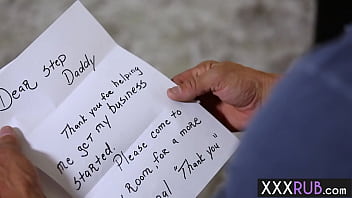 Dear Step
Daddy
Thank you for helping
me get my business
started. Please come to
room, for a more
"Thank you"
XXXRUB.COM